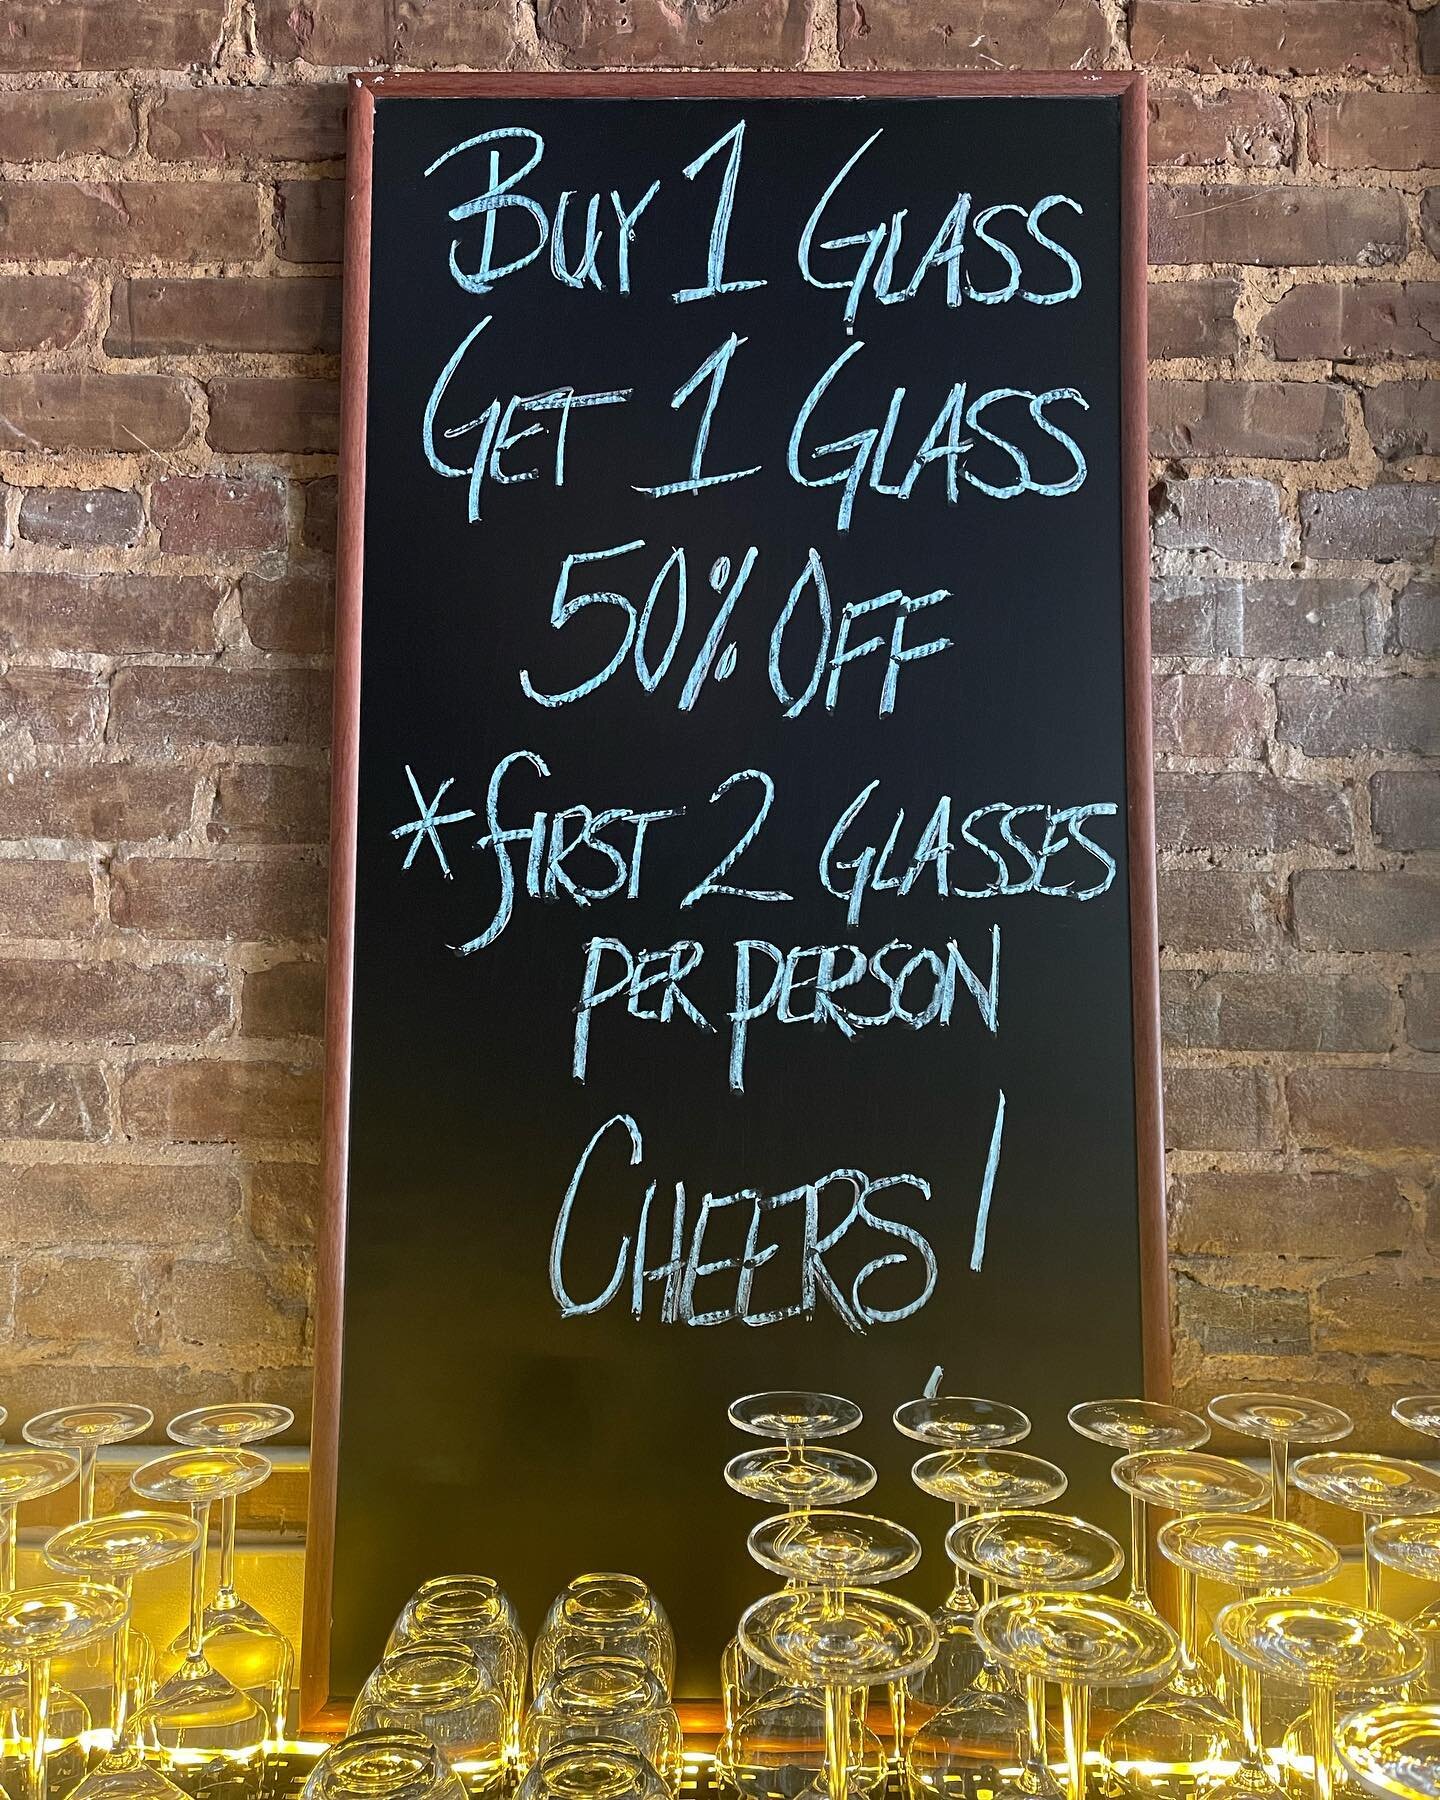 Buy 1 Glass
Get 1 Glass
50% Off
*First 2 Glasses
per person
Cheers!